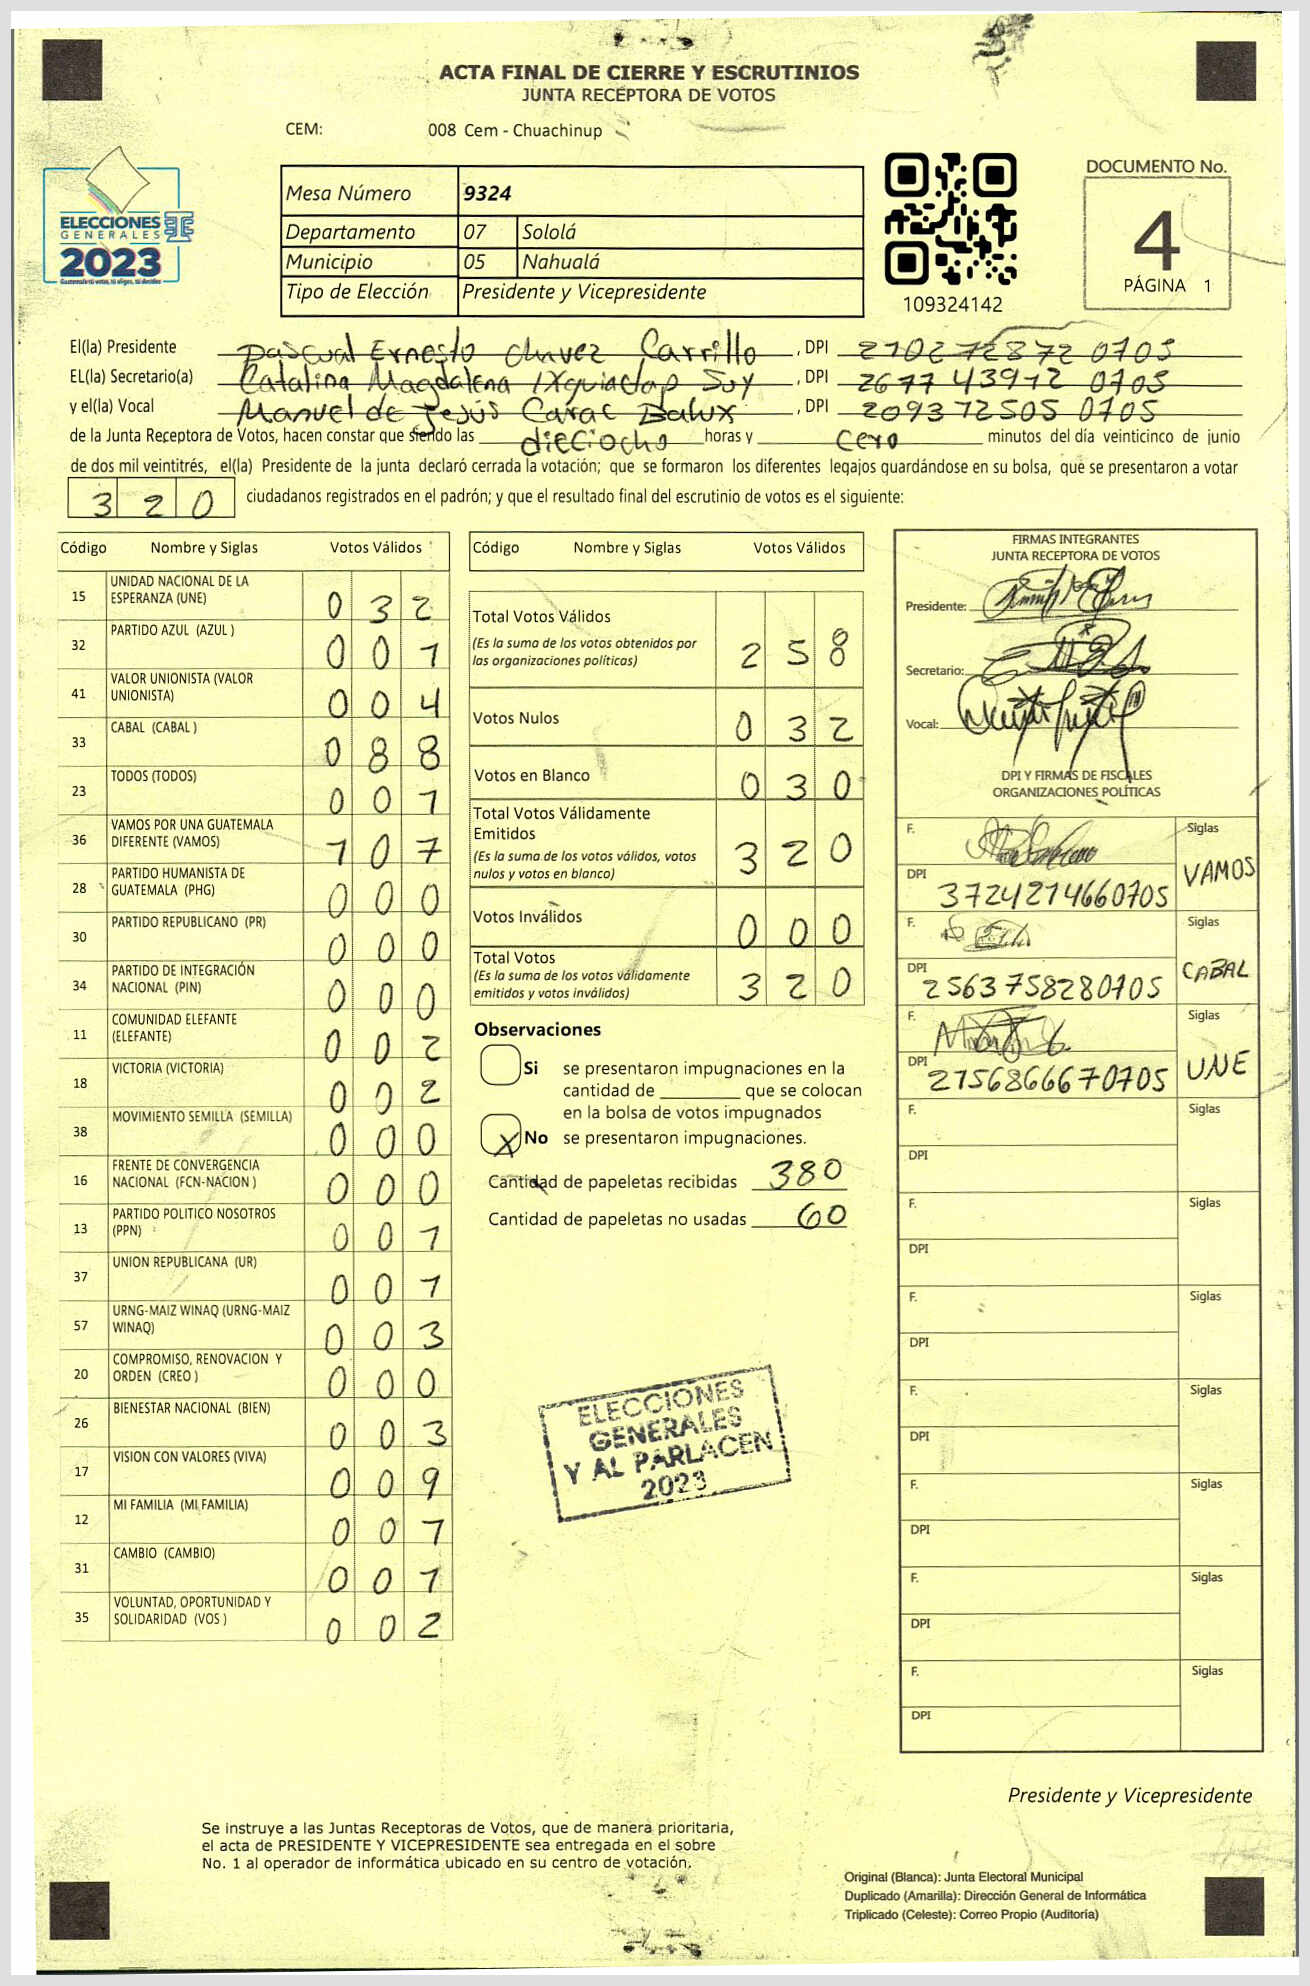 ACTA FINAL DE CIERRE Y ESCRUTINIOS
JUNTA RECEPTORA DE VOTOS
CEM: 008 Cem - Chuachinup
ELECCIONES
GENERALES
2023
Mesa Número 9324
Departamento 07 Sololá
Municipio 05 Nahualá
Tipo de Elección Presidente y Vicepresidente
109324142
DOCUMENTO No.
4
PÁGINA 1
El(la) Presidente Pascual Ernesto Chavez Carrillo, DPI 210272872 0705
EL(la) Secretario(a) Catalina Magdalena Ixquiactap Suy, DPI 2677 43912 0705
y el(la) Vocal Manuel de Jesús Carac Balux, DPI 209372505 0705
de la Junta Receptora de Votos, hacen constar que siendo las dieciocho horas y cero minutos del día veinticinco de junio
de dos mil veintitrés, el(la) Presidente de la junta declaró cerrada la votación; que se formaron los diferentes legajos guardándose en su bolsa, que se presentaron a votar
320 ciudadanos registrados en el padrón; y que el resultado final del escrutinio de votos es el siguiente:
Código Nombre y Siglas Votos Válidos
15 UNIDAD NACIONAL DE LA ESPERANZA (UNE) 032
32 PARTIDO AZUL (AZUL ) 001
41 VALOR UNIONISTA (VALOR UNIONISTA) 004
33 CABAL (CABAL ) 088
23 TODOS (TODOS) 001
36 VAMOS POR UNA GUATEMALA DIFERENTE (VAMOS) 107
28 PARTIDO HUMANISTA DE GUATEMALA (PHG) 000
30 PARTIDO REPUBLICANO (PR) 000
34 PARTIDO DE INTEGRACIÓN NACIONAL (PIN) 000
11 COMUNIDAD ELEFANTE (ELEFANTE) 002
18 VICTORIA (VICTORIA) 002
38 MOVIMIENTO SEMILLA (SEMILLA) 000
16 FRENTE DE CONVERGENCIA NACIONAL (FCN-NACION ) 000
13 PARTIDO POLITICO NOSOTROS (PPN) 001
37 UNION REPUBLICANA (UR) 001
57 URNG-MAIZ WINAQ (URNG-MAIZ WINAQ) 003
20 COMPROMISO, RENOVACION Y ORDEN (CREO ) 000
26 BIENESTAR NACIONAL (BIEN) 003
17 VISION CON VALORES (VIVA) 009
12 MI FAMILIA (MI FAMILIA) 007
31 CAMBIO (CAMBIO) 001
35 VOLUNTAD, OPORTUNIDAD Y SOLIDARIDAD (VOS ) 002
Código Nombre y Siglas Votos Válidos
Total Votos Válidos 258
(Es la suma de los votos obtenidos por
las organizaciones políticas)
Votos Nulos 032
Votos en Blanco 030
Total Votos Válidamente
Emitidos 320
(Es la suma de los votos válidos, votos
nulos y votos en blanco)
Votos Inválidos 000
Total Votos 320
(Es la suma de los votos válidamente
emitidos y votos inválidos)
Observaciones
Si se presentaron impugnaciones en la
cantidad de ________ que se colocan
en la bolsa de votos impugnados
X No se presentaron impugnaciones.
Cantidad de papeletas recibidas 380
Cantidad de papeletas no usadas 60
ELECCIONES
GENERALES
Y AL PARLACEN
2023
FIRMAS INTEGRANTES
JUNTA RECEPTORA DE VOTOS
Presidente:
Secretario:
Vocal:
DPI Y FIRMAS DE FISCALES
ORGANIZACIONES POLÍTICAS
F. Siglas
DPI 3724214660705 VAMOS
F. Siglas
DPI 2563758280705 CABAL
F. Siglas
DPI 2756866670705 UNE
F. Siglas
DPI
F. Siglas
DPI
F. Siglas
DPI
F. Siglas
DPI
F. Siglas
DPI
F. Siglas
DPI
F. Siglas
DPI
Presidente y Vicepresidente
Se instruye a las Juntas Receptoras de Votos, que de manera prioritaria,
el acta de PRESIDENTE Y VICEPRESIDENTE sea entregada en el sobre
No. 1 al operador de informática ubicado en su centro de votación.
Original (Blanca): Junta Electoral Municipal
Duplicado (Amarilla): Dirección General de Informática
Triplicado (Celeste): Correo Propio (Auditoría)